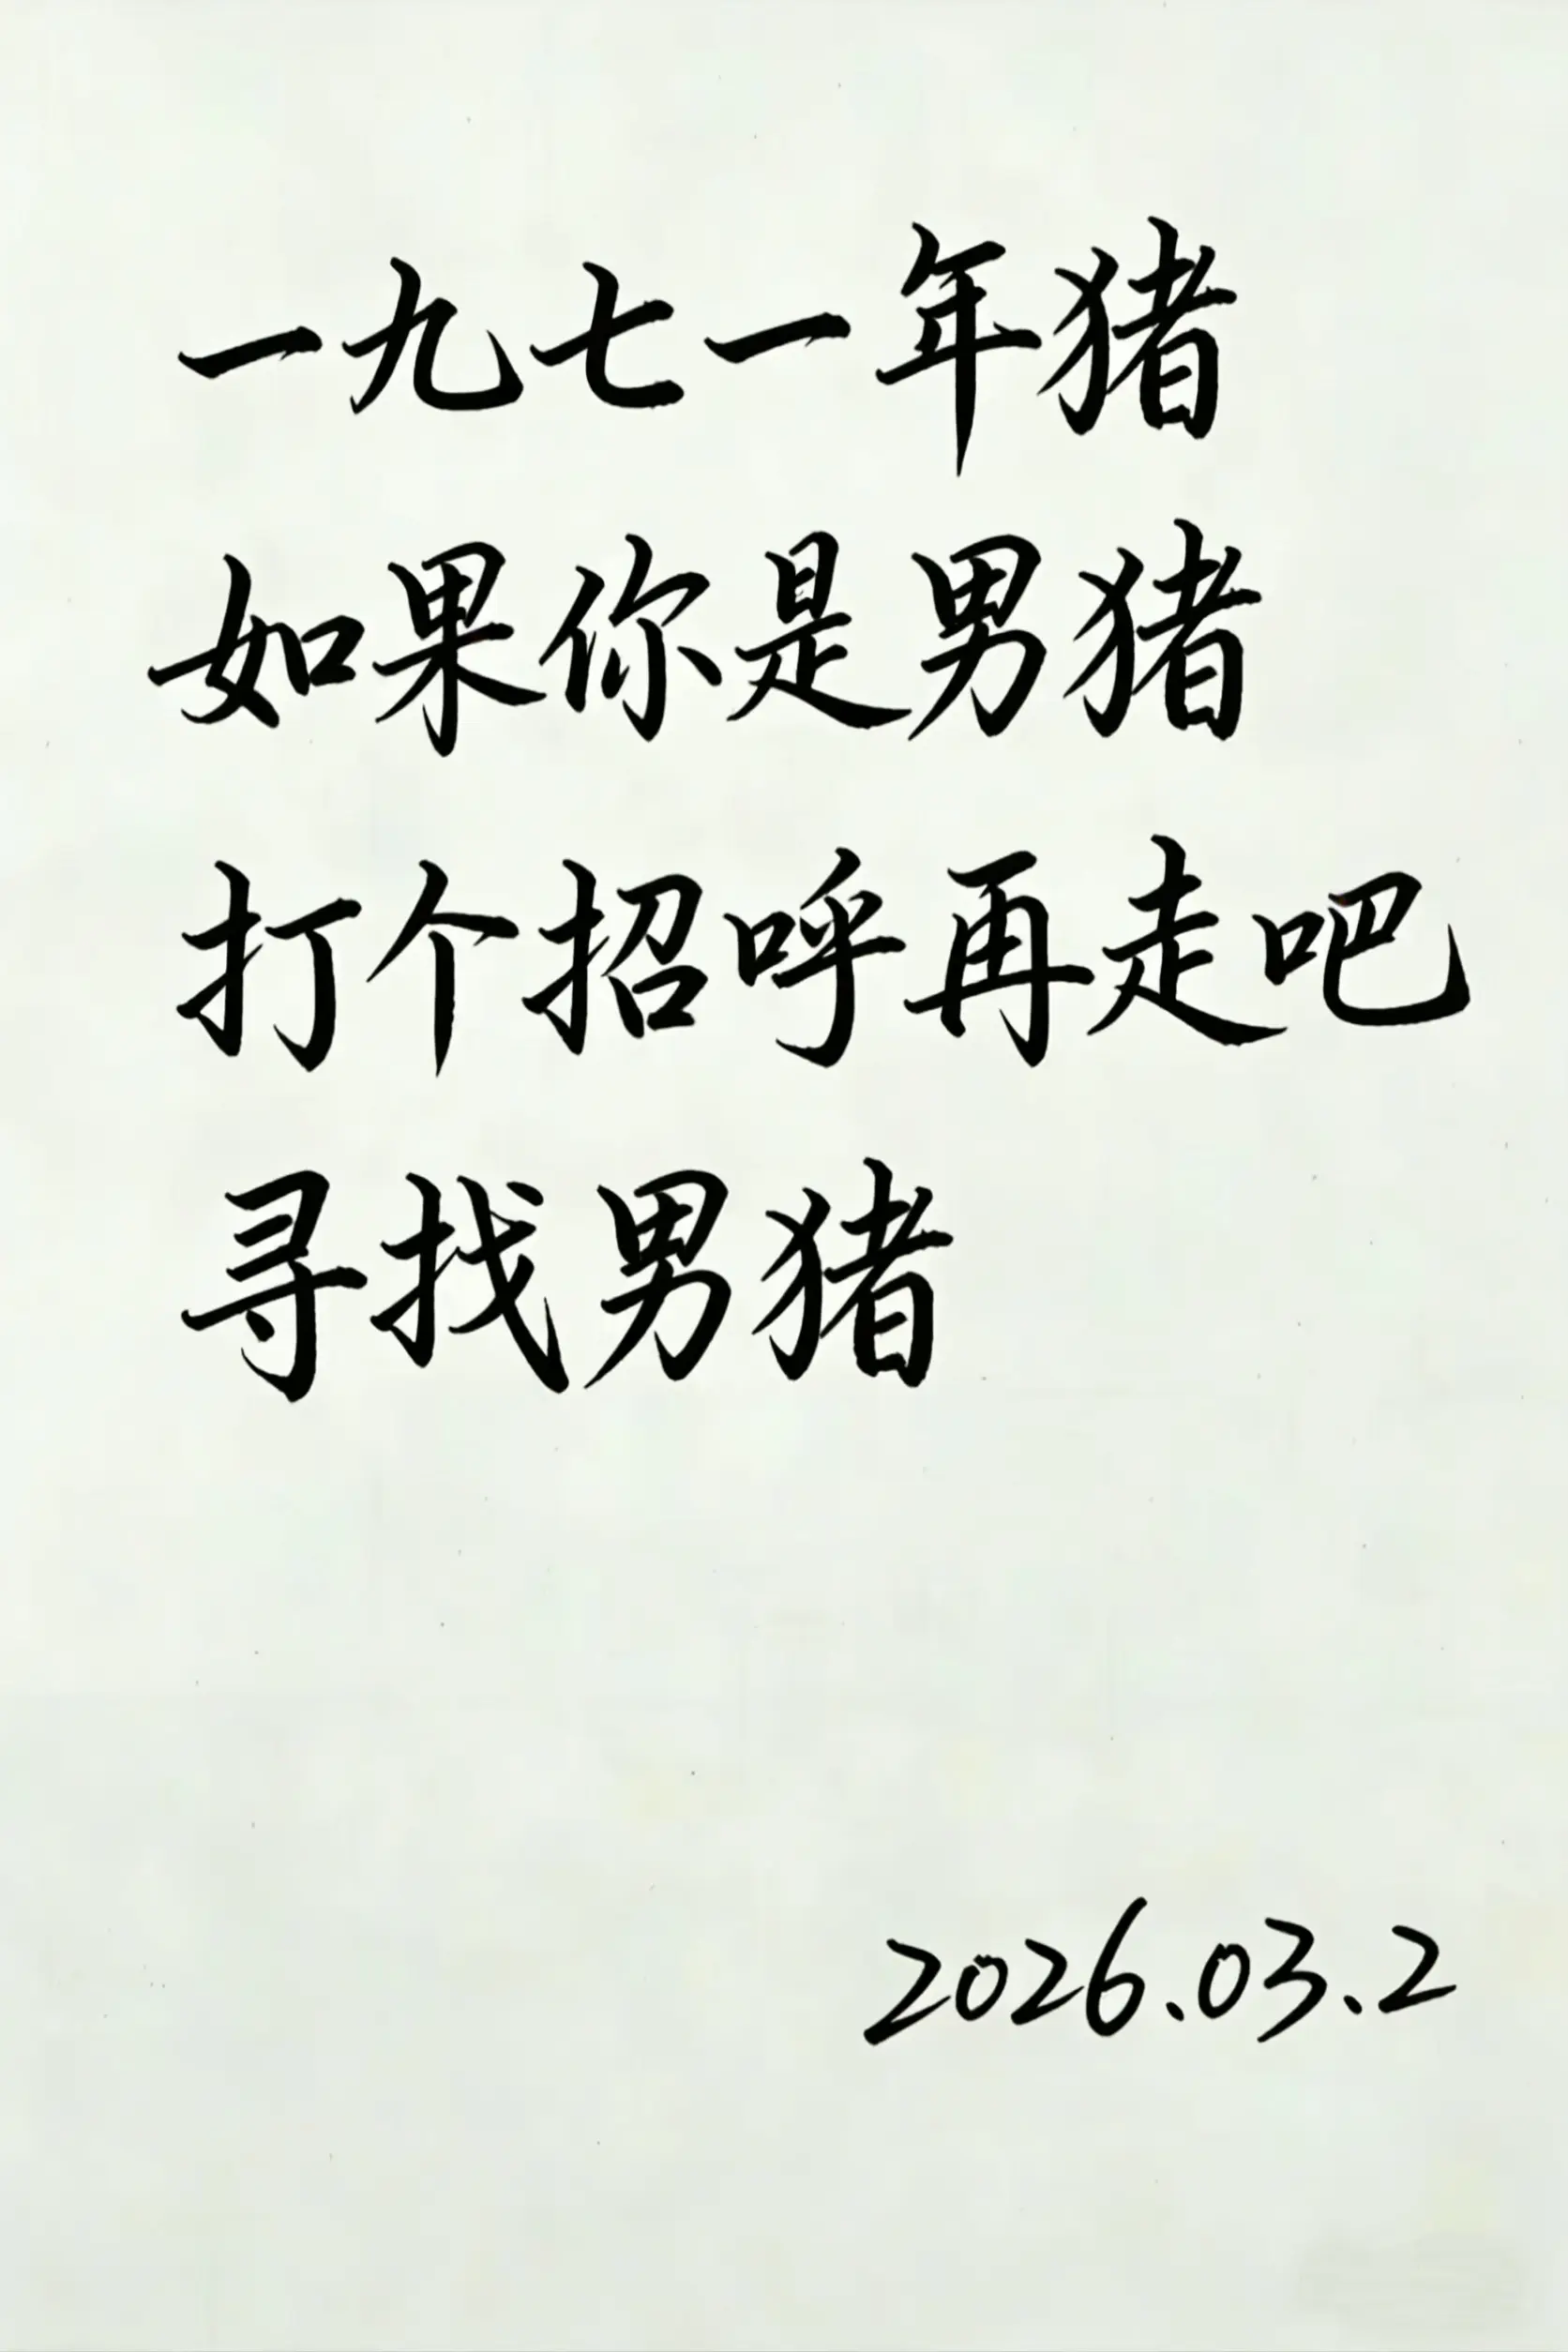 一九七一年猪
如果你是男猪
打个招呼再走吧
寻找男猪
2026.03.2